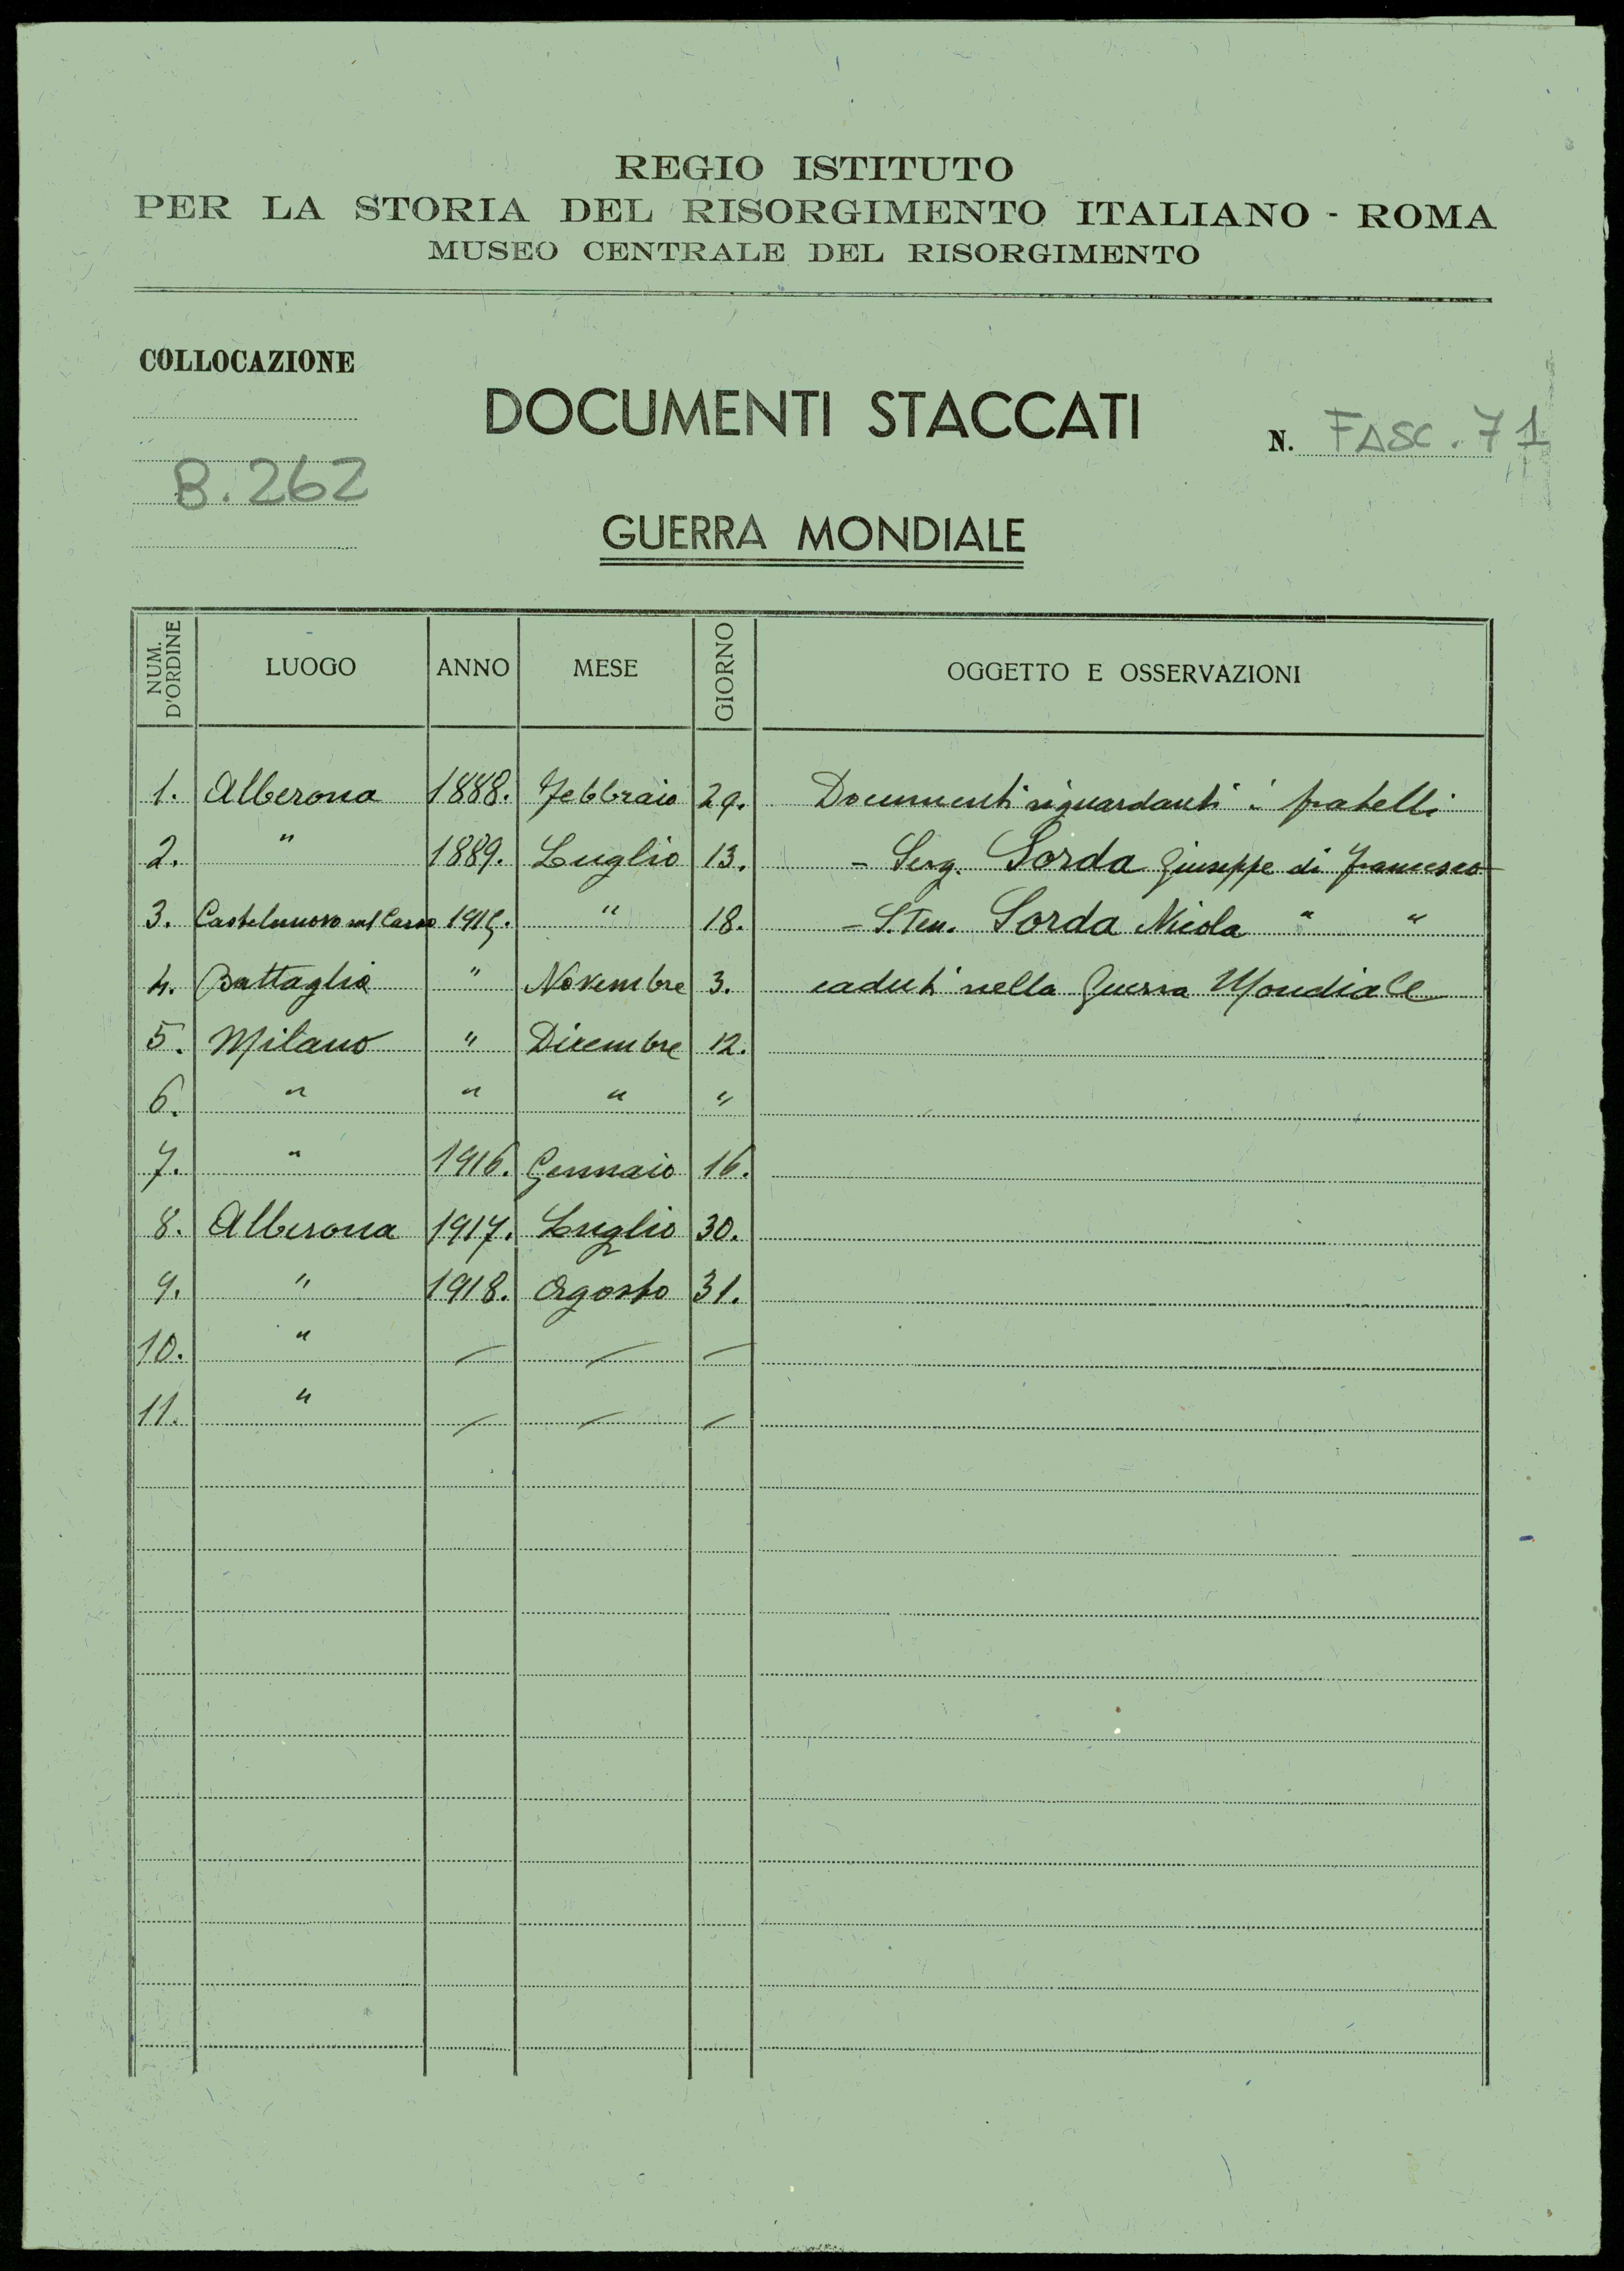 REGIO ISTITUTO
PER LA STORIA DEL RISORGIMENTO ITALIANO - ROMA
MUSEO CENTRALE DEL RISORGIMENTO
COLLOCAZIONE
DOCUMENTI STACCATI
N. FASC. 71
B. 262
GUERRA MONDIALE
NUM. D'ORDINE LUOGO ANNO MESE GIORNO OGGETTO E OSSERVAZIONI
1. Alberona 1888. Febbraio 29. Documenti riguardanti i fratelli
2. " 1889. Luglio 13. - Serg. Sorda Giuseppe di Francesco
3. Castelnuovo sul Carso 1915. " 18. - S.Ten. Sorda Nicola " "
4. Battaglia " Novembre 3. caduti nella Guerra Mondiale
5. Milano " Dicembre 12.
6. " " " "
7. " 1916. Gennaio 16.
8. Alberona 1917. Luglio 30.
9. " 1918. Agosto 31.
10. " — — —
11. " — — —